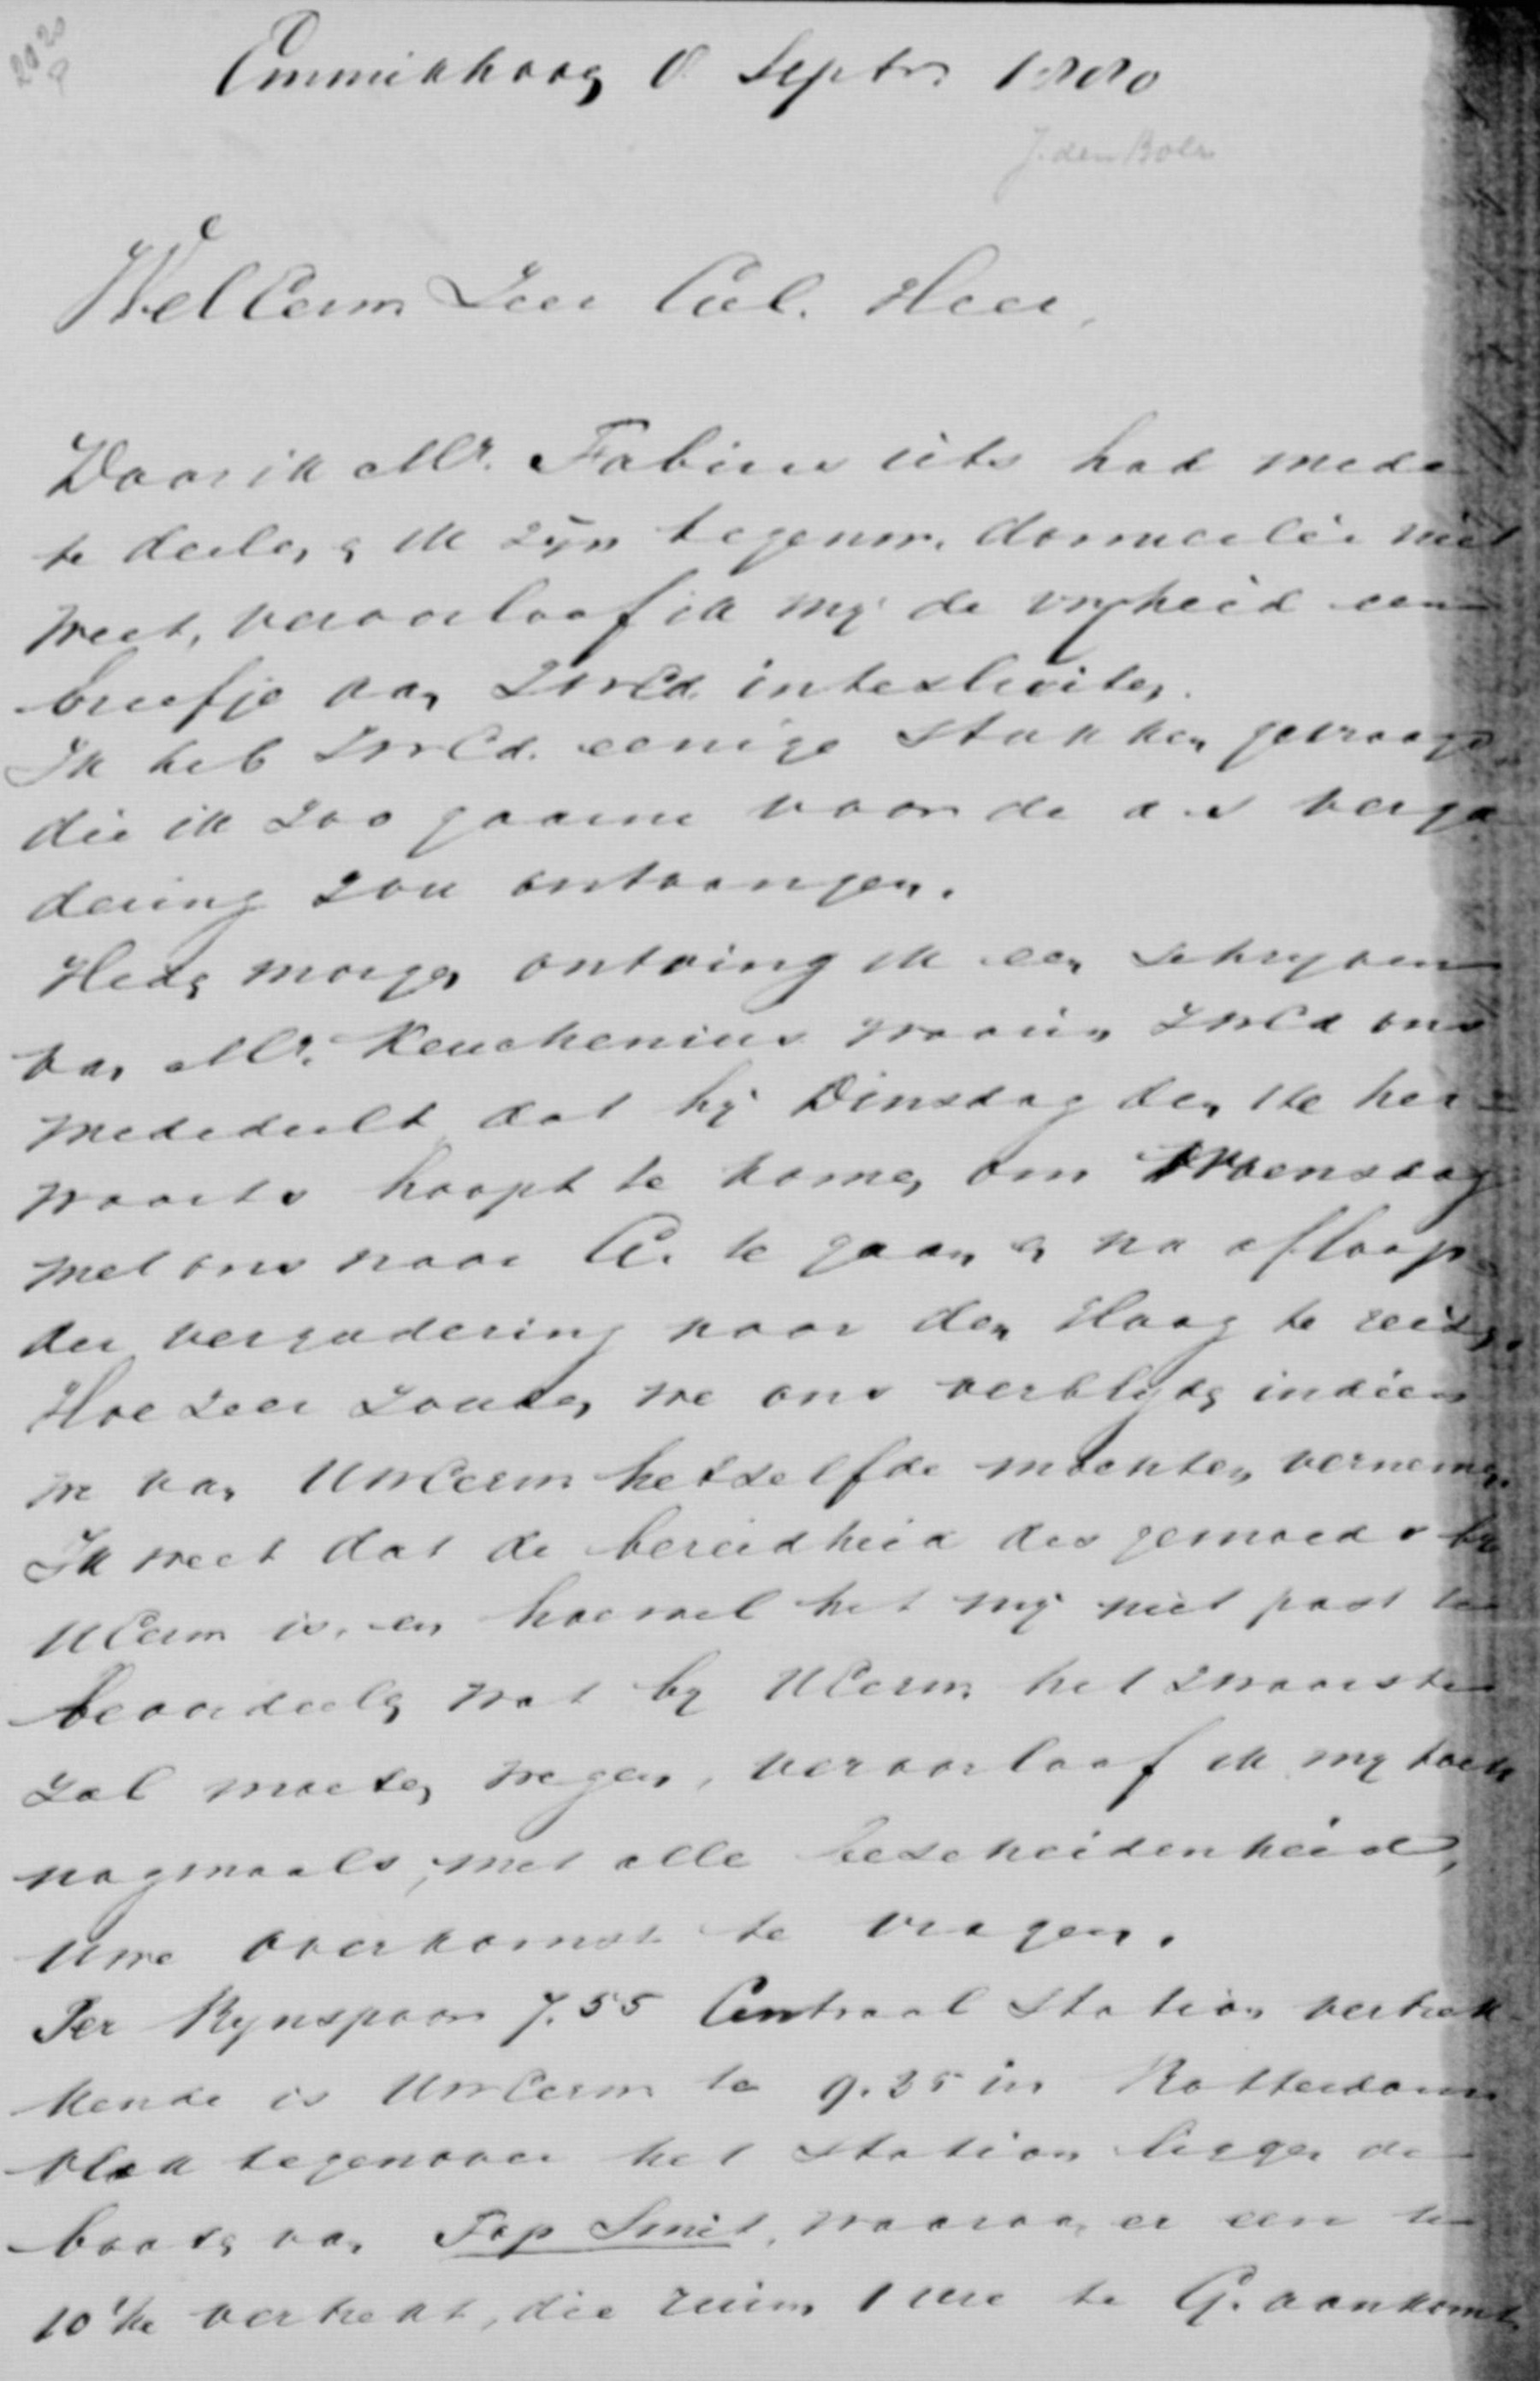 Emmikhoog 8 Septr. 1880
J. den Boer
WelEerw Zeer Gel. Heer,
Daar ik Mr. Fabius iets had mede
te deelen, & ik zijn tegenw. domicilie niet
weet, veroorloof ik mij de vrijheid een
briefje aan ZWEd. intesluiten.
Ik heb ZWEd. eenige stukken gevraagd
die ik zoo gaarne voor de a.s verga
dering zou ontvangen.
Heden morgen ontving ik een schrijven
van Mr. Keuchenius waarin ZWEd ons
mededeelt dat hij Dinsdag den 14e her
waarts hoopt te komen om Woensdag
met ons naar G. te gaan en na afloop
der vergadering naar den Haag te reizen.
Hoe zeer zouden we ons verblijden indien
we van UWEerw hetzelfde mochten vernemen.
Ik weet dat de bereidheid des gemoeds bij
UEerw is, en hoewel het mij niet past te
beoordeelen wat bij UEerw. het zwaarste
zal moeten wegen, veroorloof ik mij toch
nogmaals, met alle bescheidenheid,
uwe overkomst te vragen.
Per Rijnspoor 7.55 Centraal Station vertrek
kende is UWEerw te 9.35 in Rotterdam
vlak tegenover het Station liggen de
booten van Fop Smit, waarvan er een te
10 1/2 vertrekt, die ruim 1 ure te G. aankomt,